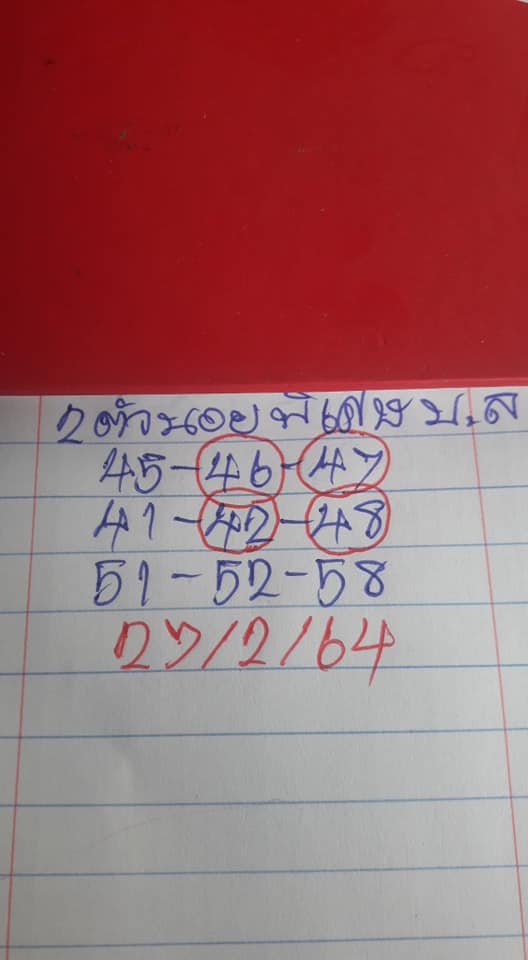 2ตัวนอยพิเศษ บ.ล
45-46-47
41-42-48
51-52-58
27/2/64